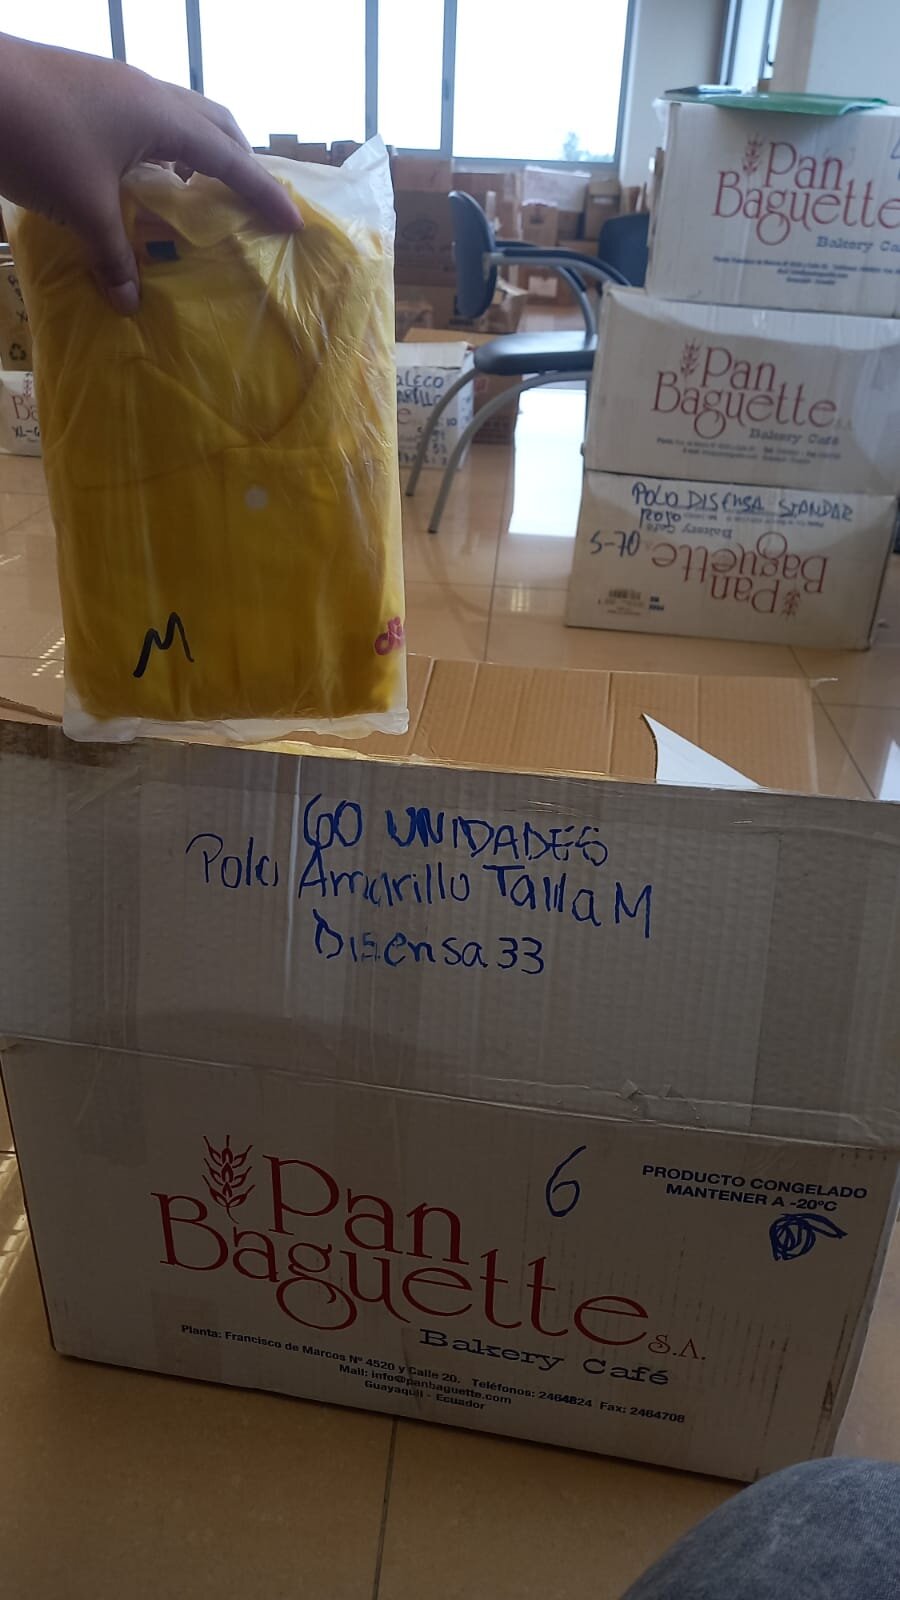 Pan
Baguette
Bakery Ca
Pan
Baguette
S.A.
Bakery Café
POLO DISENSA STANDAR
ROJO
S-70
Pan
Baguette
Bakery Café
M
60 UNIDADES
Polo Amarillo Talla M
Disensa 33
6
PRODUCTO CONGELADO
MANTENER A -20ºC
Pan
Baguette S.A.
Bakery Café
Planta: Francisco de Marcos Nº 4520 y Calle 20. Teléfonos: 2464824 Fax: 2464708
Mail: info@panbaguette.com
Guayaquil - Ecuador